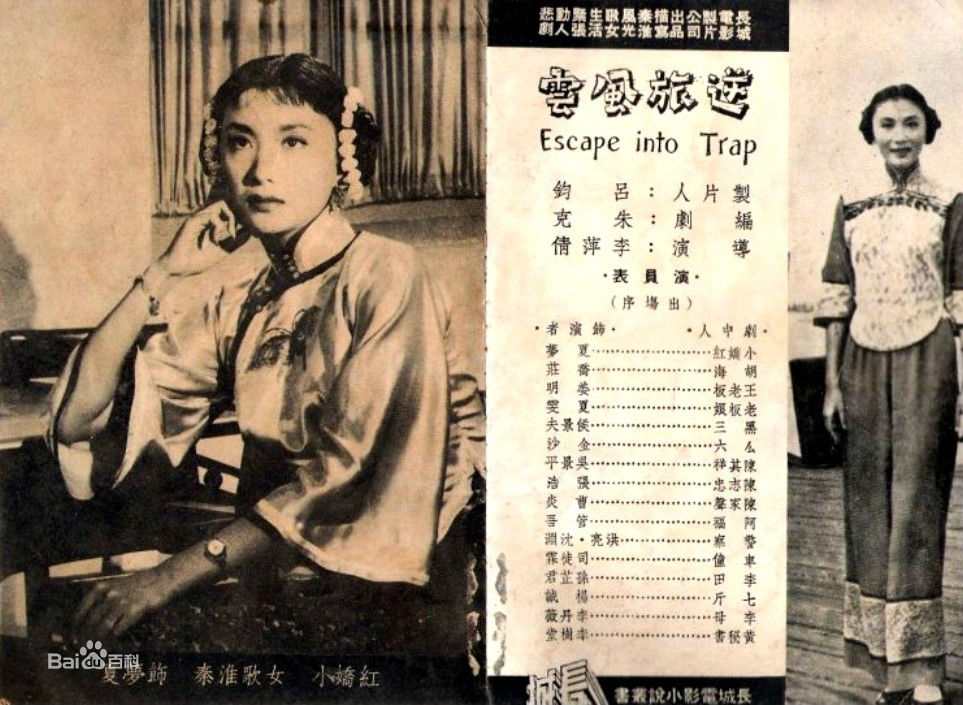 夏夢飾 秦淮歌女 小嬌紅
Bai百科
長城電影製片公司出品描寫秦淮風光歌女生活緊張動人悲劇
逆旅風雲
Escape into Trap
製片人：呂鈞
編劇：朱克
導演：李萍倩
·演員表·
（出場序）
·劇中人· ·飾演者·
小嬌紅……夏夢
胡海……喬莊
王老板……姜明
老板娘……夏雯
黑三……侯景夫
么六……金沙
陳其祥……吳景平
陳志忠……張浩
陳家聲……曹炎
阿福……管吾
警察……洪亮·沈淵
車僮……司徒霖
李田……孫芷君
七斤……楊誠
李母……李丹薇
黃秘書……李樹堂
長城
長城電影小說叢書